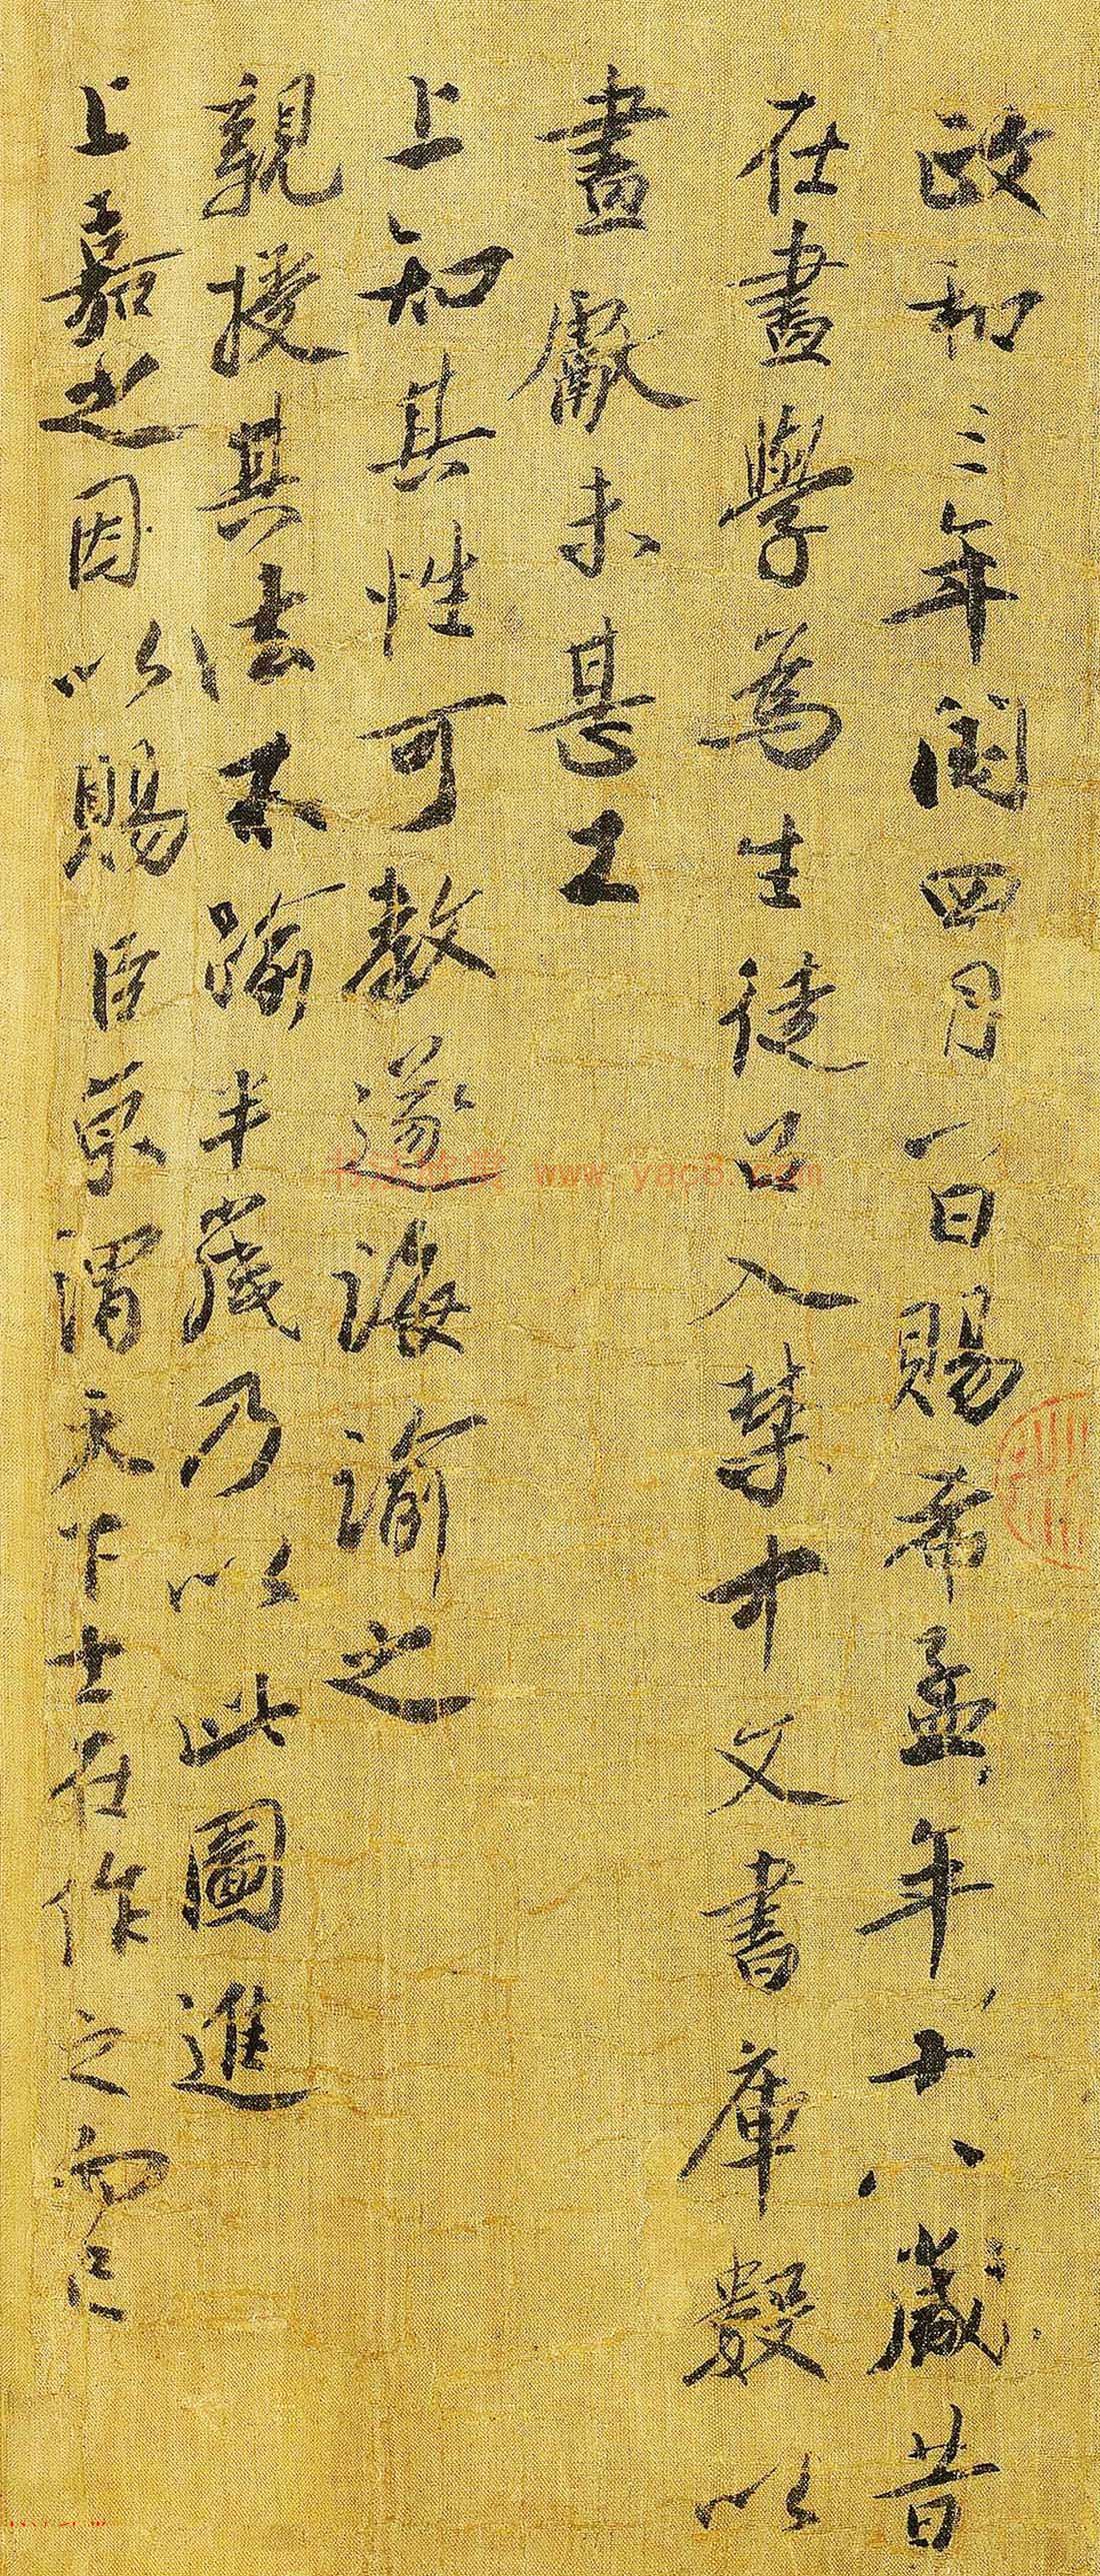 政和三年閏四月一日賜希孟年十八歲昔
在畫學為生徒召入禁中文書庫數以
畫獻未甚工
上知其性可教遂誨諭之
親授其法不踰半歲乃以此圖進
上嘉之因以賜臣京謂天下士在作之而已
www.yac8.com